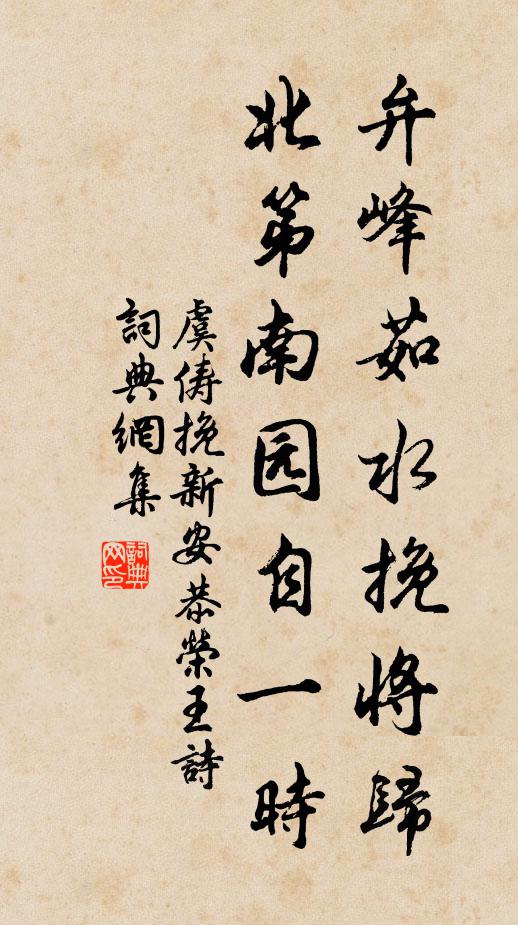 弁峰茹水挽將歸
北第南园自一時
虞儔挽新安恭榮王詩
詞典網集
詞典网印